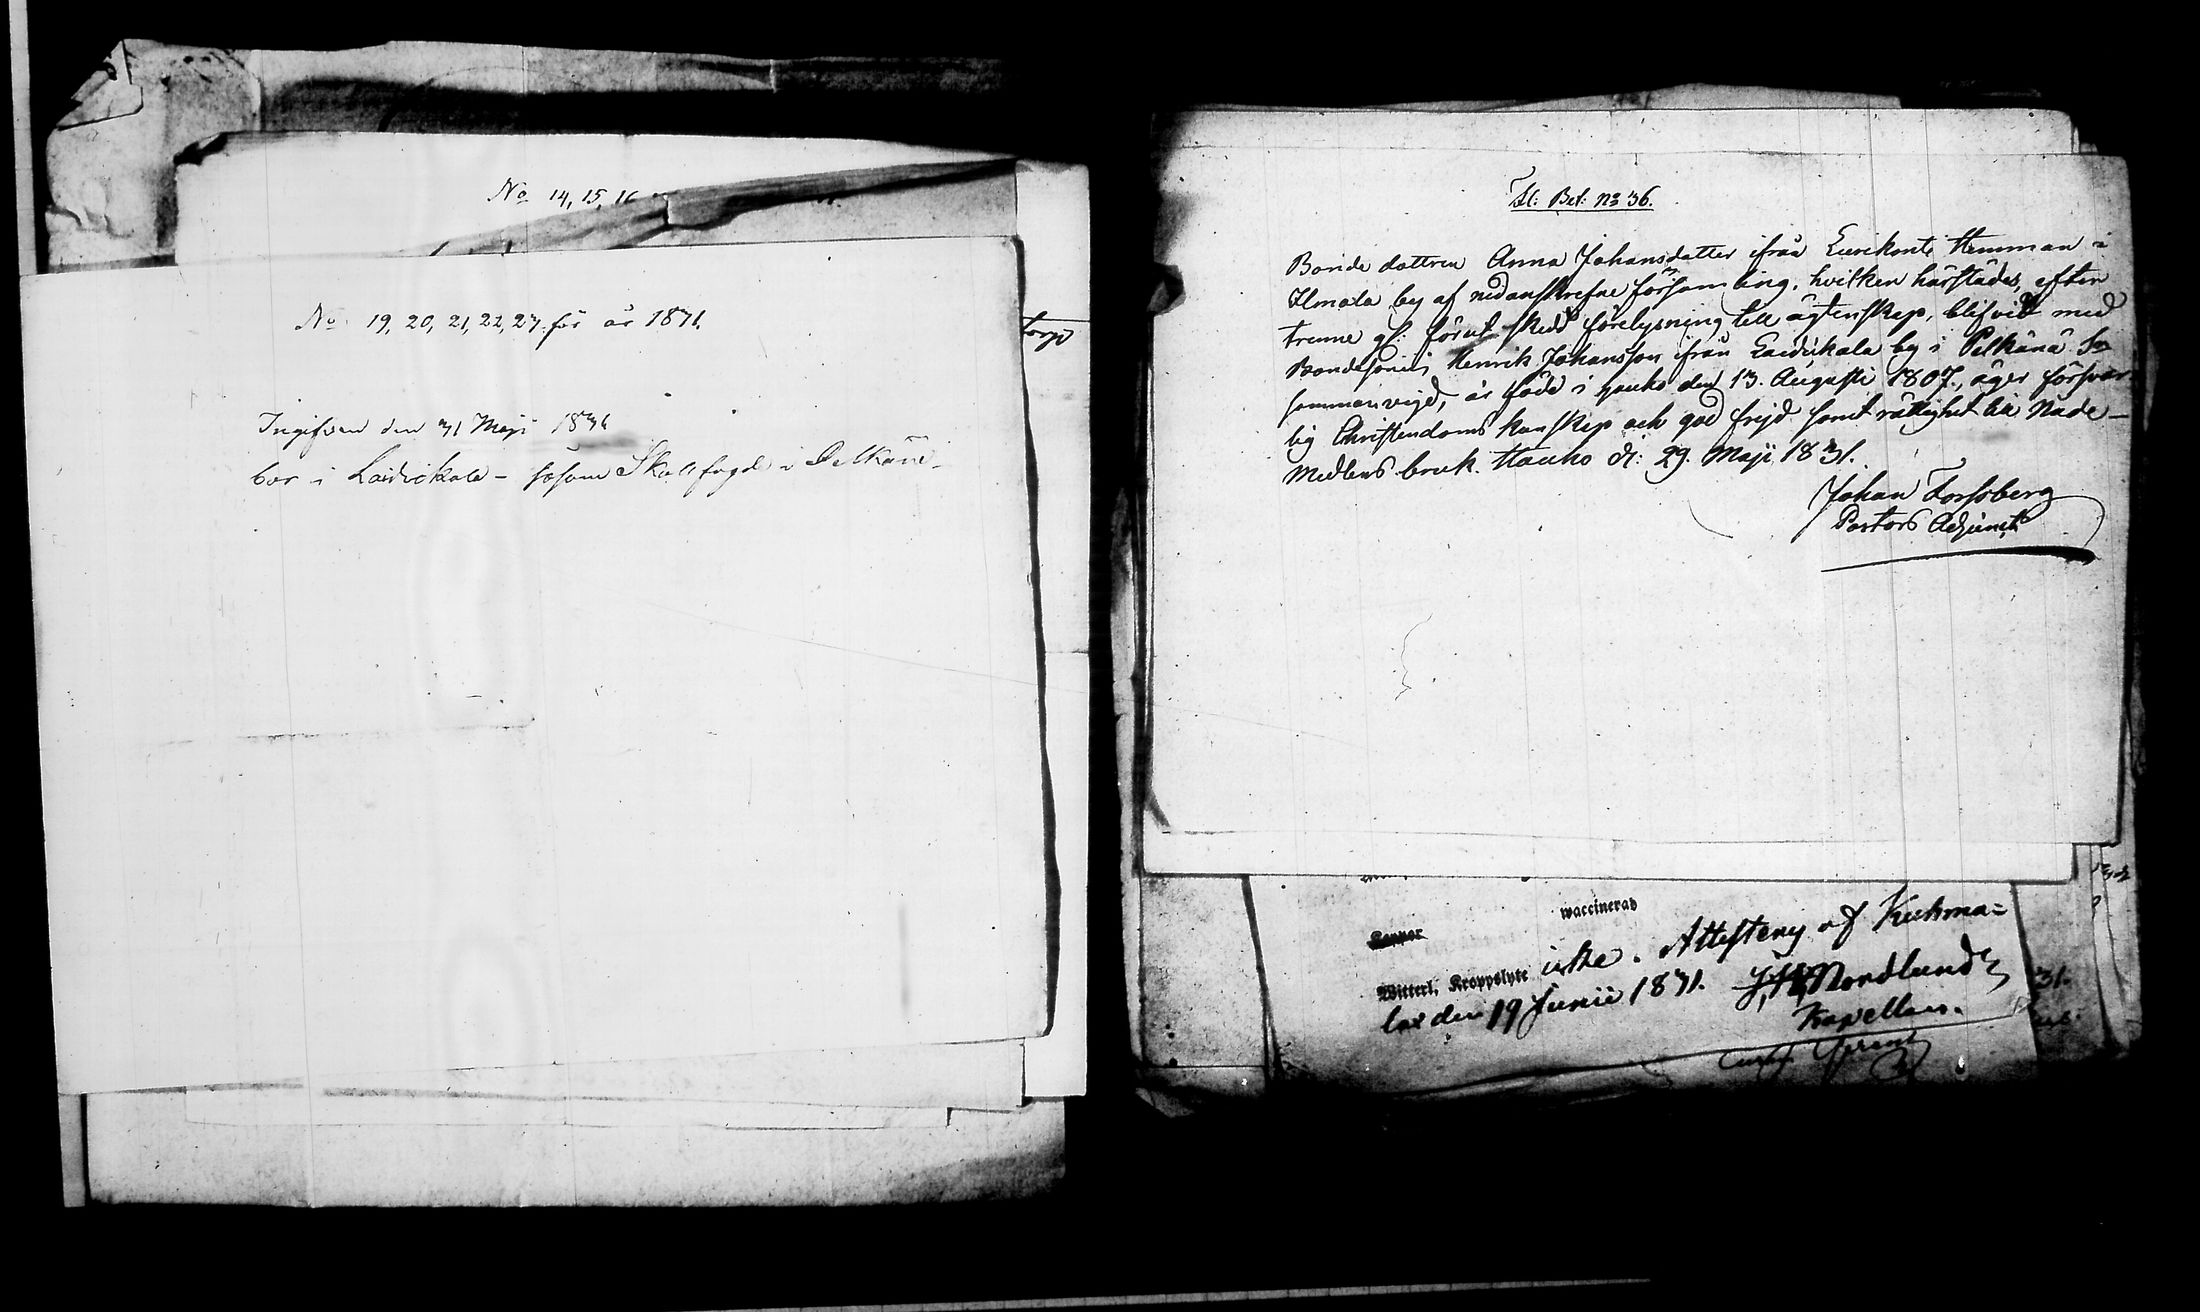 No 14, 15, 16
No 19, 20, 21, 22, 23 för år 1831.
Ingifven den 31 Maji 1831
bor i Laidikala – såsom Skallfogde i Pelkäne
torp
Fl: Bet: No 36.
Bonde dottren Anna Johansdotter ifrån Eerikonti Hemman i
Ilmola by af nedanskrefne församling, hvilken härstädes, efter
trenne gr: förut skedd förelysning till ägtenskap, blifvit med
Bondesonen Henrik Johansson ifrån Laidikala by i Pelkäne Sn
sammanvigd, är född i Hauho den 13. Augusti 1807., äger försvar-
lig Christendoms kunskap och god frejd samt rättighet till Nåde-
Medlens bruk. Hauho d: 29. Maji 1831.
Johan Forssberg
Pastors Adjunct
waccinerad
Koppor
Witterl. Kroppslyte icke. Attesteray af Kuhma=
lax den 19 Junii 1831. J. H. Nordlund
Kapellan.
31.